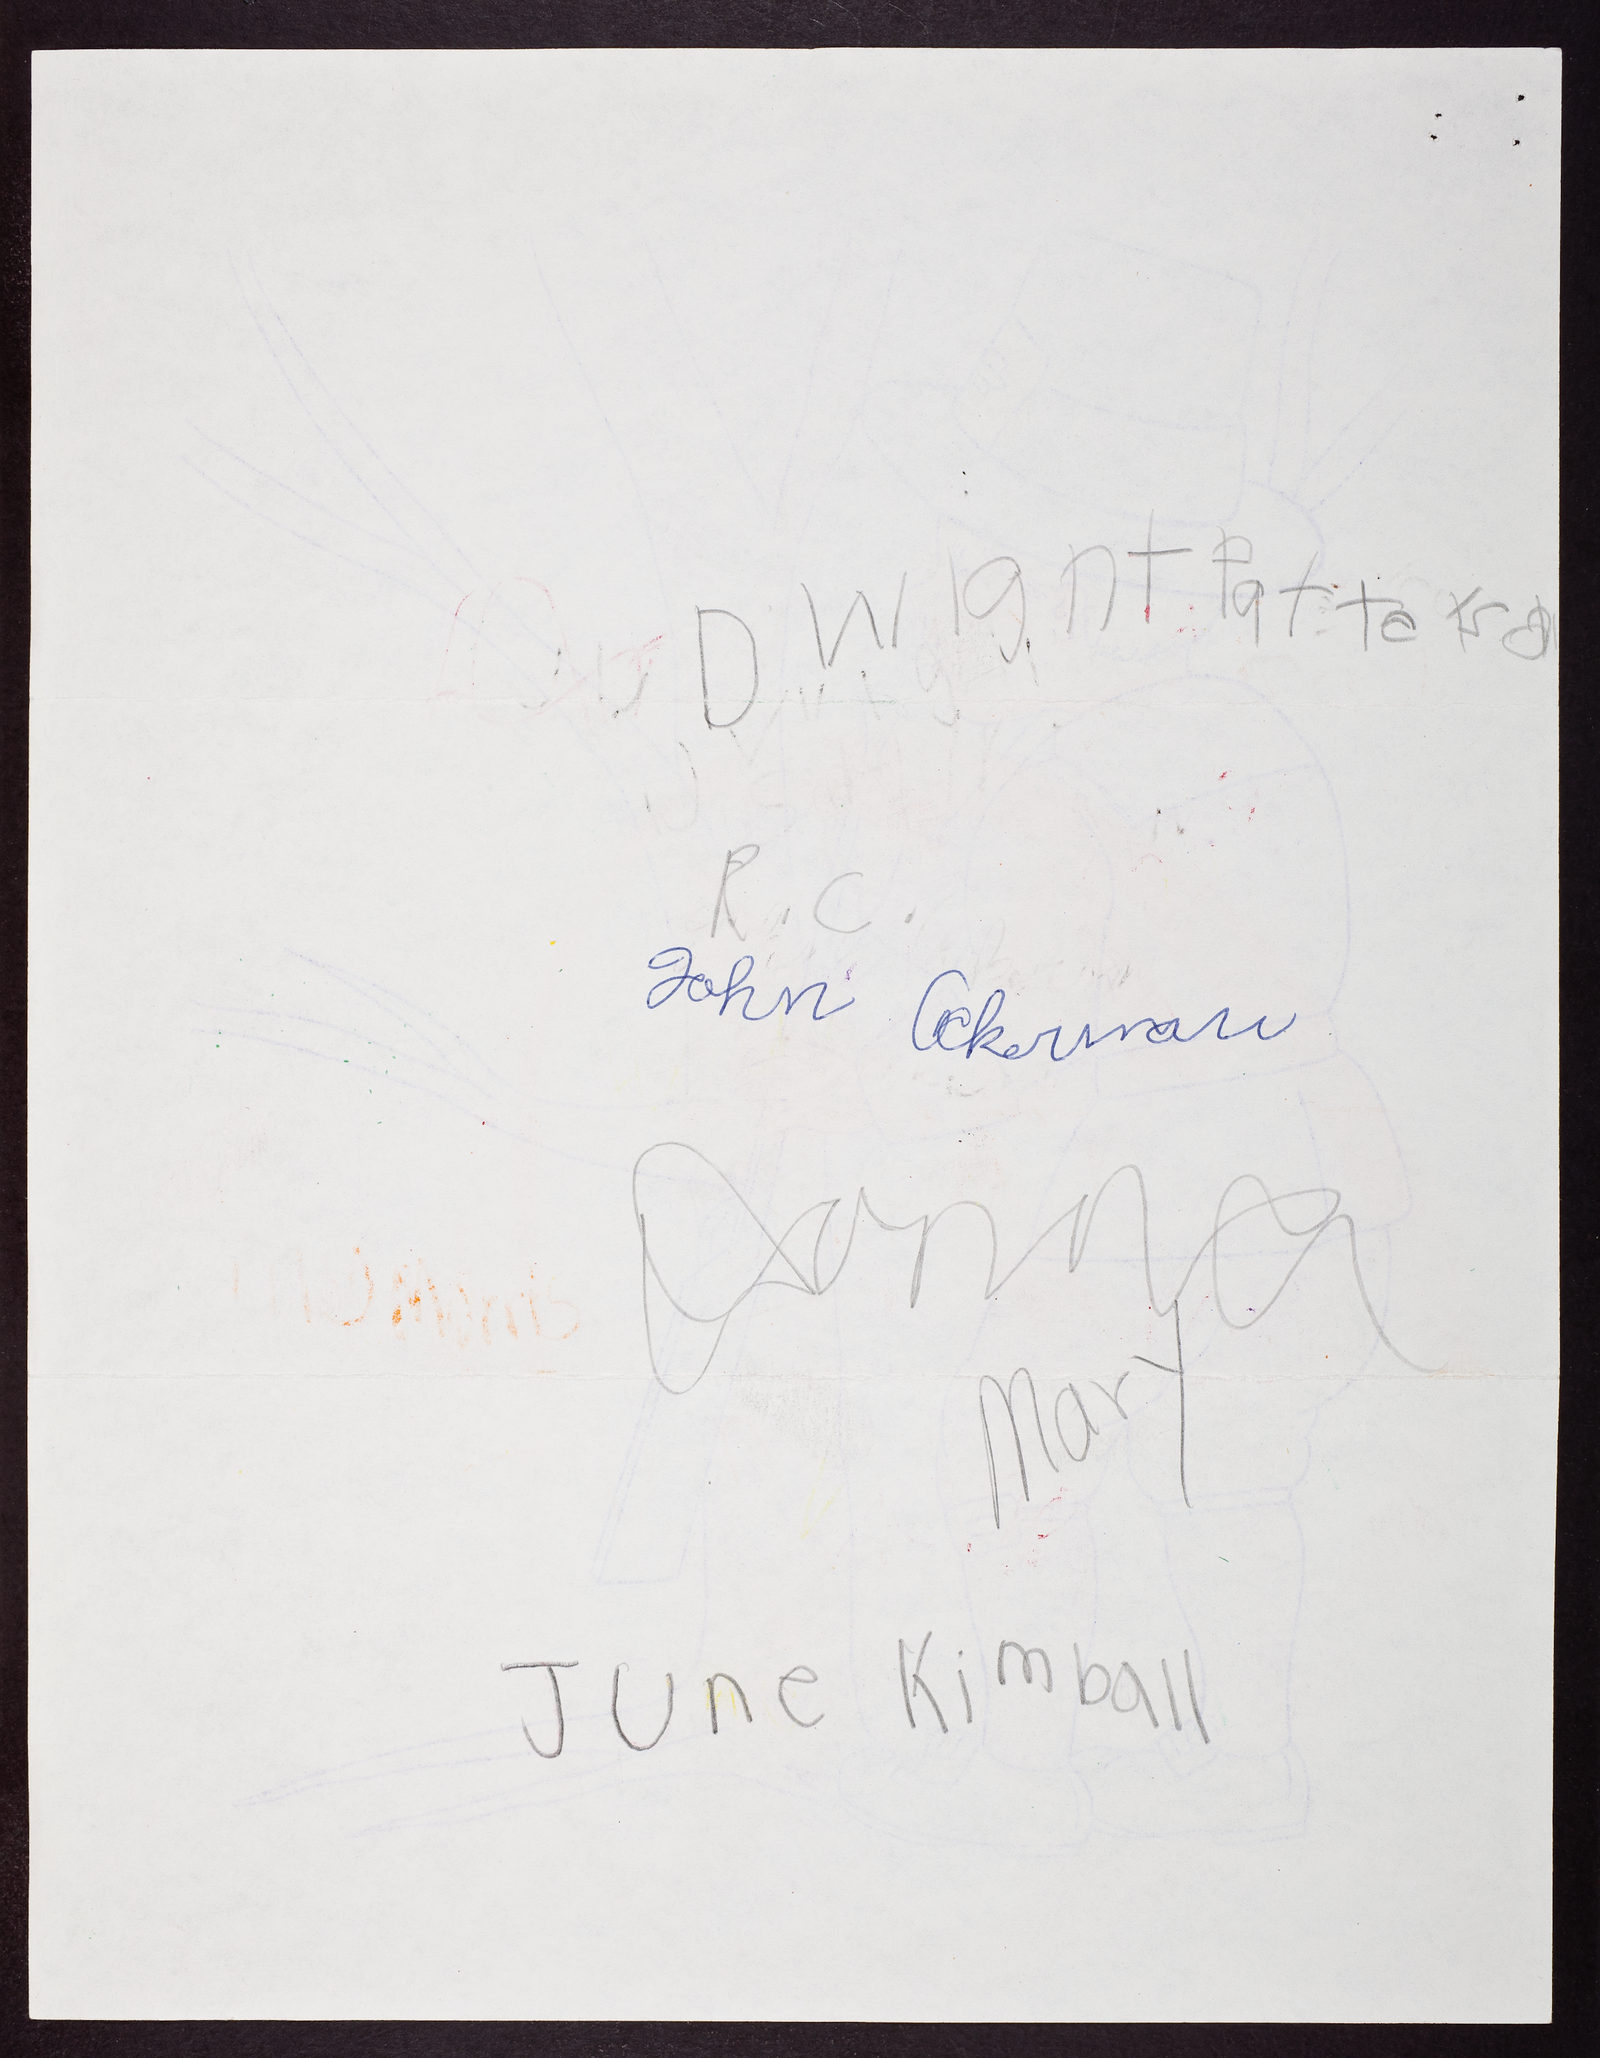 Dwight Patterson
R.C.
John Ackerman
Donna
Mary
June Kimball